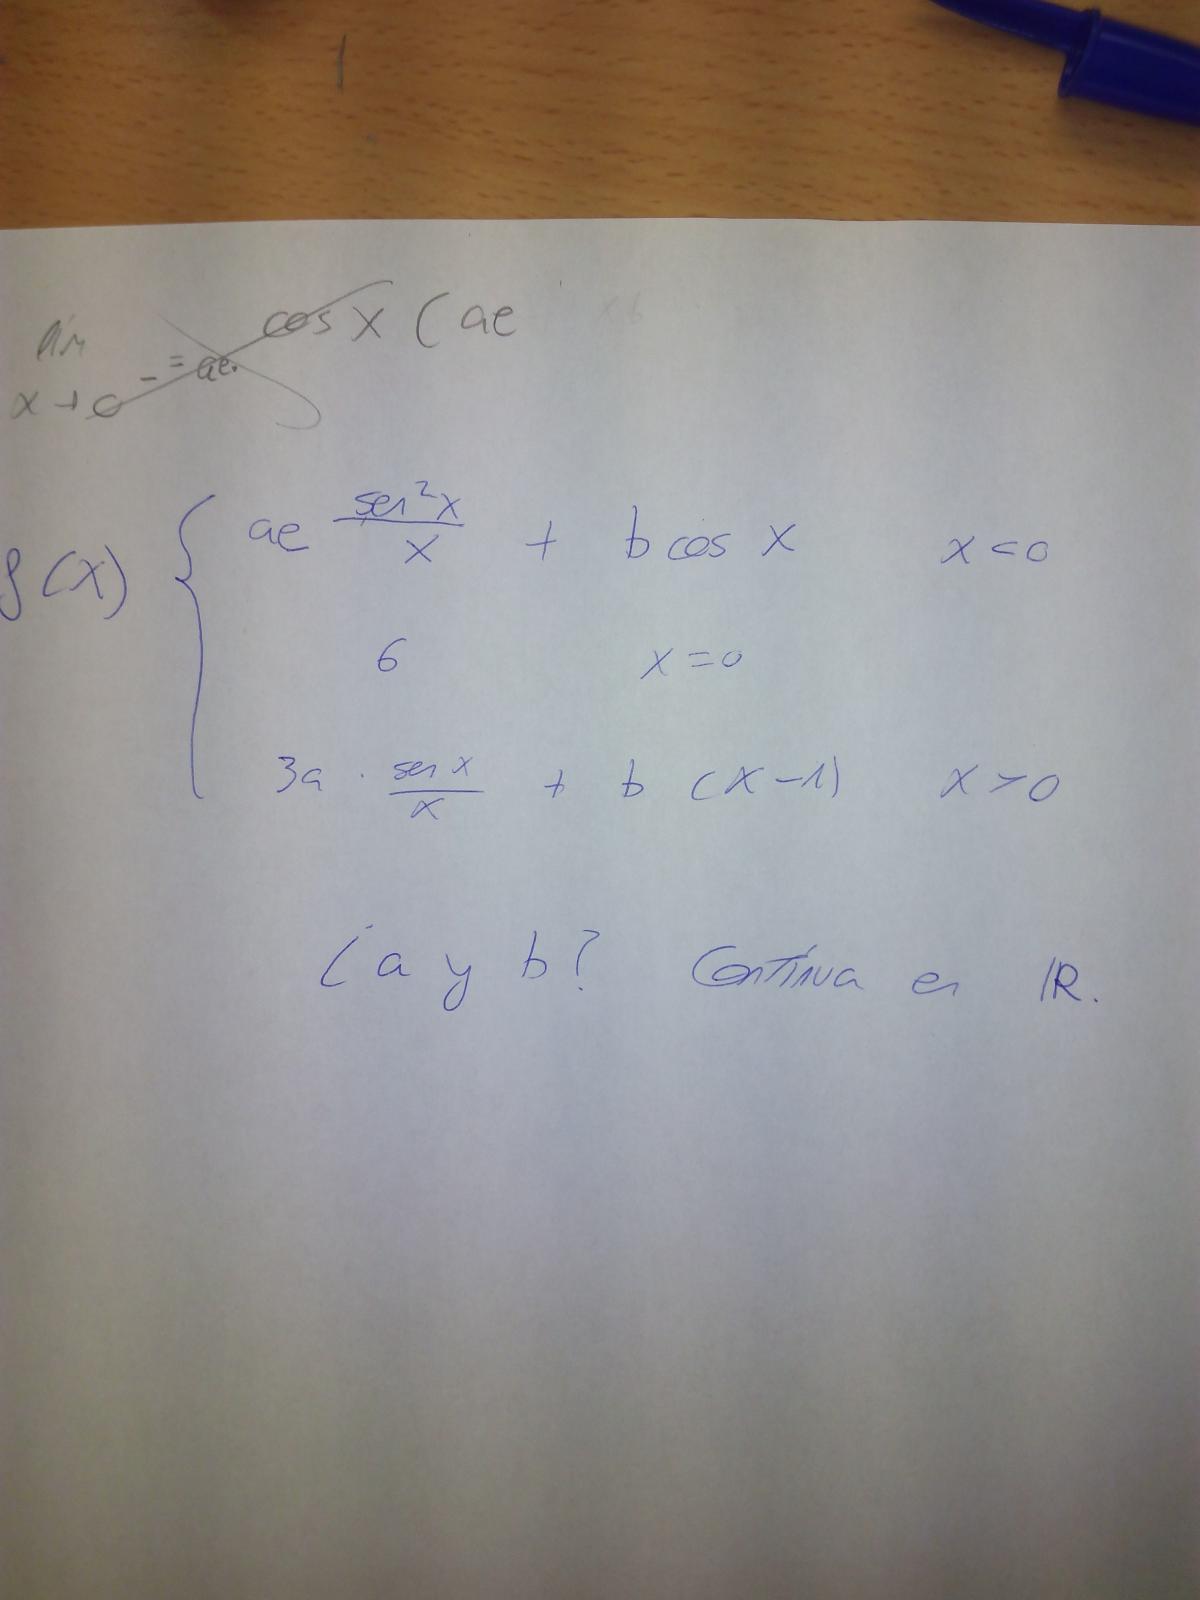 cos x ( ae
lim
x → 0⁻ = ae.
f(x) { ae^(sen²x / x) + b cos x    x < 0
6    x = 0
3a · sen x / x + b (x - 1)    x > 0
¿ a y b ? Contínua en ℝ.